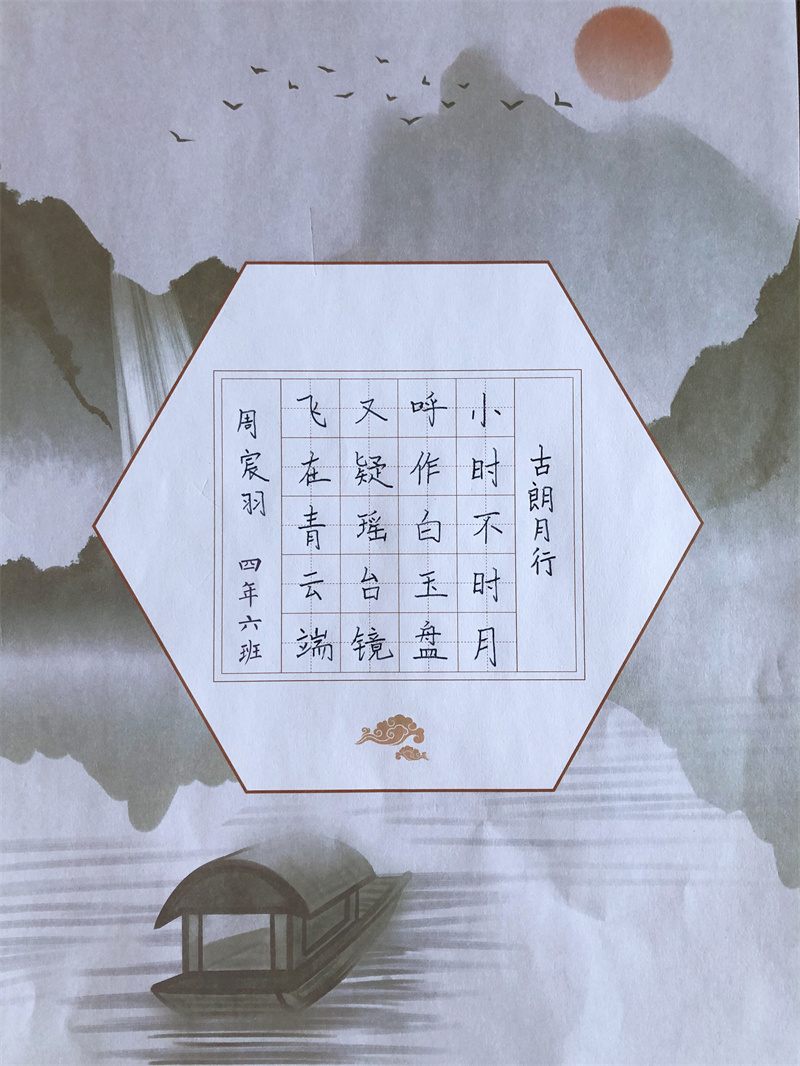 古朗月行
小时不时月
呼作白玉盘
又疑瑶台镜
飞在青云端
周宸羽 四年六班